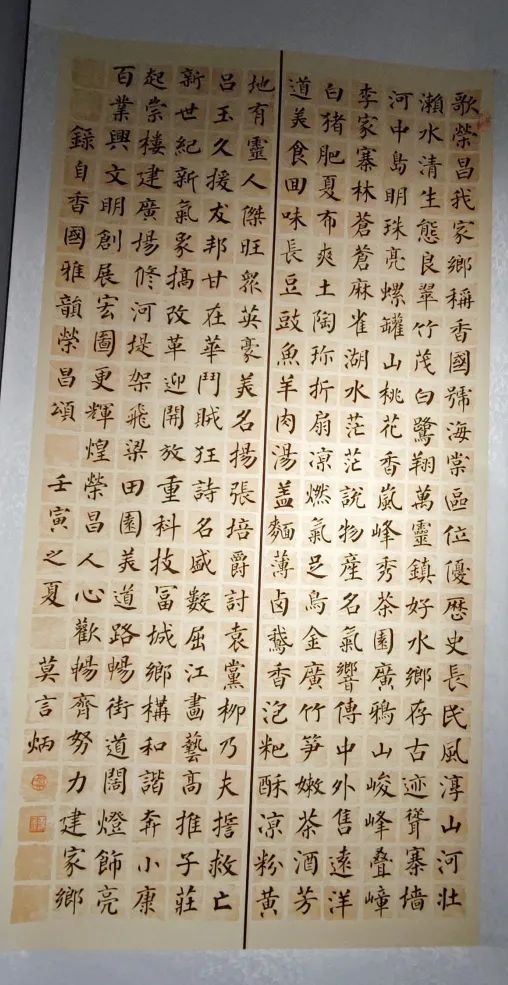 歌榮昌我家鄉稱香國號海棠區位優歷史長民風淳山河壯
瀨水清生態良翠竹茂白鷺翔萬靈鎮好水鄉存古迹聳寨墻
河中島明珠亮螺罐山桃花香嵐峰秀茶園廣鴉山峻峰疊嶂
李家寨林蒼蒼麻雀湖水茫茫說物產名氣響傳中外售遠洋
白猪肥夏布爽土陶珎折扇凉燃氣足烏金廣竹笋嫩茶酒芳
道美食回味長豆豉魚羊肉湯盖麵薄卤鵝香泡粑酥凉粉黄
地有靈人傑旺眾英豪美名揚張培爵討袁黨柳乃夫誓救亡
吕玉久援友邦甘在華鬥賊狂詩名盛數屈江畫藝高推子莊
新世紀新氣象搞改革迎開放重科技富城鄉構和諧奔小康
起崇樓建廣場修河堤架飛梁田園美道路暢街道闊燈飾亮
百業興文明創展宏圖更輝煌榮昌人心歡暢齊努力建家鄉
錄自香國雅韻榮昌頌 壬寅之夏 莫言炳